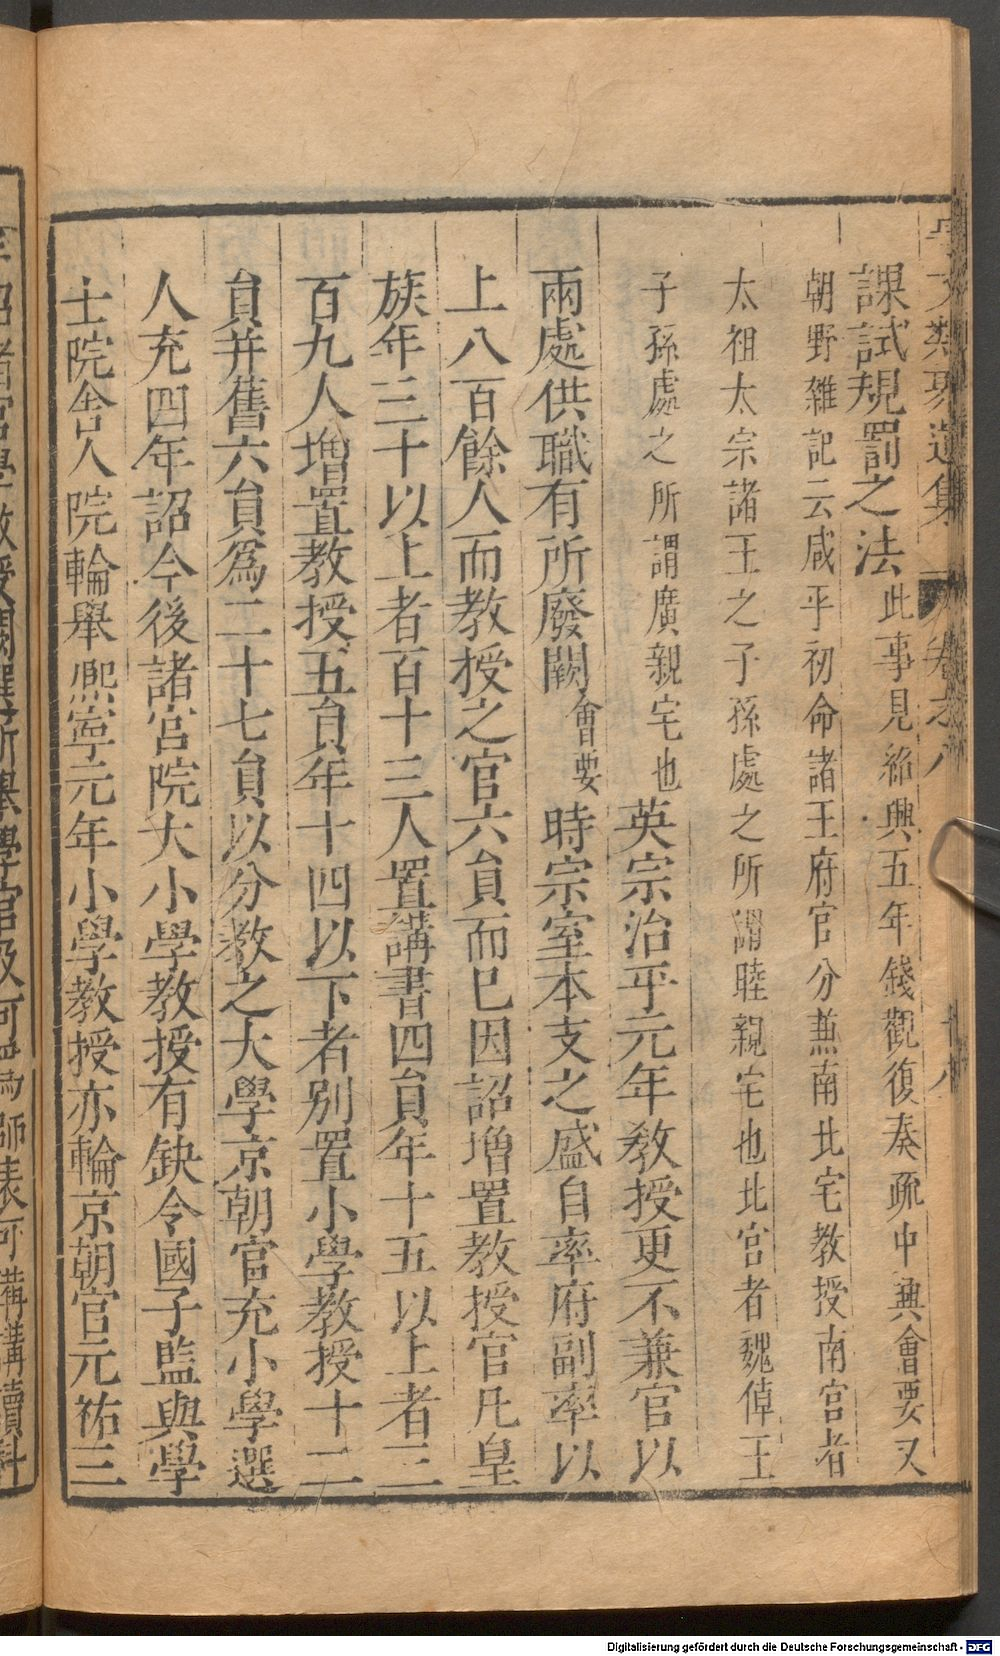 課試規罰之法此事見紹興五年錢觀復奏疏中興會要又
朝野雜記云咸平初命諸王府官分兼南北宅教授南宮者
太祖太宗諸王之子孫處之所謂睦親宅也北宮者魏倬王
子孫處之所謂廣親宅也英宗治平元年教授更不兼官以
兩處供職有所廢闕會要時宗室本支之盛自率府副率以
上八百餘人而教授之官六員而巳因詔增置教授官凡皇
族年三十以上者百十三人置講書四員年十五以上者三
百九人增置教授五員年十四以下者別置小學教授十二
員并舊六員爲二十七員以分教之大學京朝官充小學選
人充四年詔今後諸宮院大小學教授有缺令國子監與學
士院舍人院輪舉熙寧元年小學教授亦輪京朝官元祐三
年詔諸宮學教授闕選所舉學官及可為師表可備講讀科
Digitalisierung gefördert durch die Deutsche Forschungsgemeinschaft - DFG